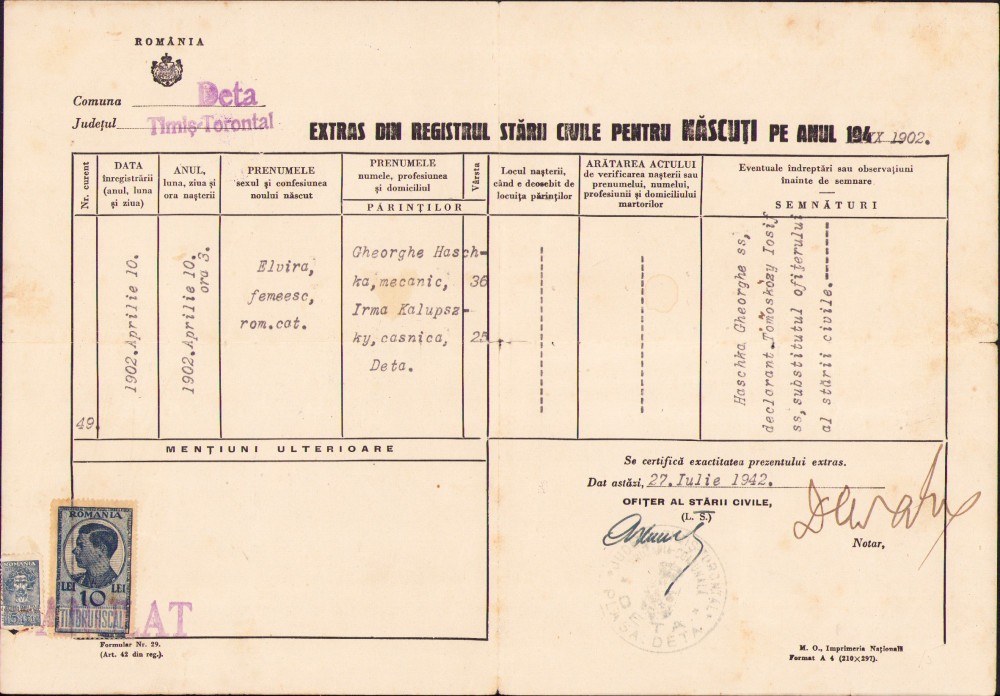 ROMÂNIA
Comuna Deta
Județul Timiș-Torontal
EXTRAS DIN REGISTRUL STĂRII CIVILE PENTRU NĂSCUȚI PE ANUL 194XX 1902.
Nr. curent
DATA
înregistrării
(anul, luna
și ziua)
ANUL,
luna, ziua și
ora nașterii
PRENUMELE
sexul și confesiunea
noului născut
PRENUMELE
numele, profesiunea
și domiciliul
Vârsta
PĂRINȚILOR
Locul nașterii,
când e deosebit de
locuița părinților
ARĂTAREA ACTULUI
de verificarea nașterii sau
prenumelui, numelui,
profesiunii și domiciliului
martorilor
Eventuale îndreptări sau observațiuni
înainte de semnare
SEMNĂTURI
49.
1902. Aprilie 10.
1902. Aprilie 10.
ora 3.
Elvira,
femeesc,
rom.cat.
Gheorghe Hasch-
ka, mecanic, 36
Irma Kalupsz-
ky, casnica, 25
Deta.
Haschka Gheorghe ss,
declarant Tömösközy Iosif
ss, substitutul ofițerului
al stării civile.--------
MENȚIUNI ULTERIOARE
Se certifică exactitatea prezentului extras.
Dat astăzi, 27. Iulie 1942.
OFIȚER AL STĂRII CIVILE,
(L. S.)
Notar,
PLASA DETA
ROMANIA
LEI 10 LEI
TIMBRU FISCAL
ROMANIA
5
Formular Nr. 29.
(Art. 42 din reg.).
M. O., Imprimeria Națională
Format A 4 (210×297).